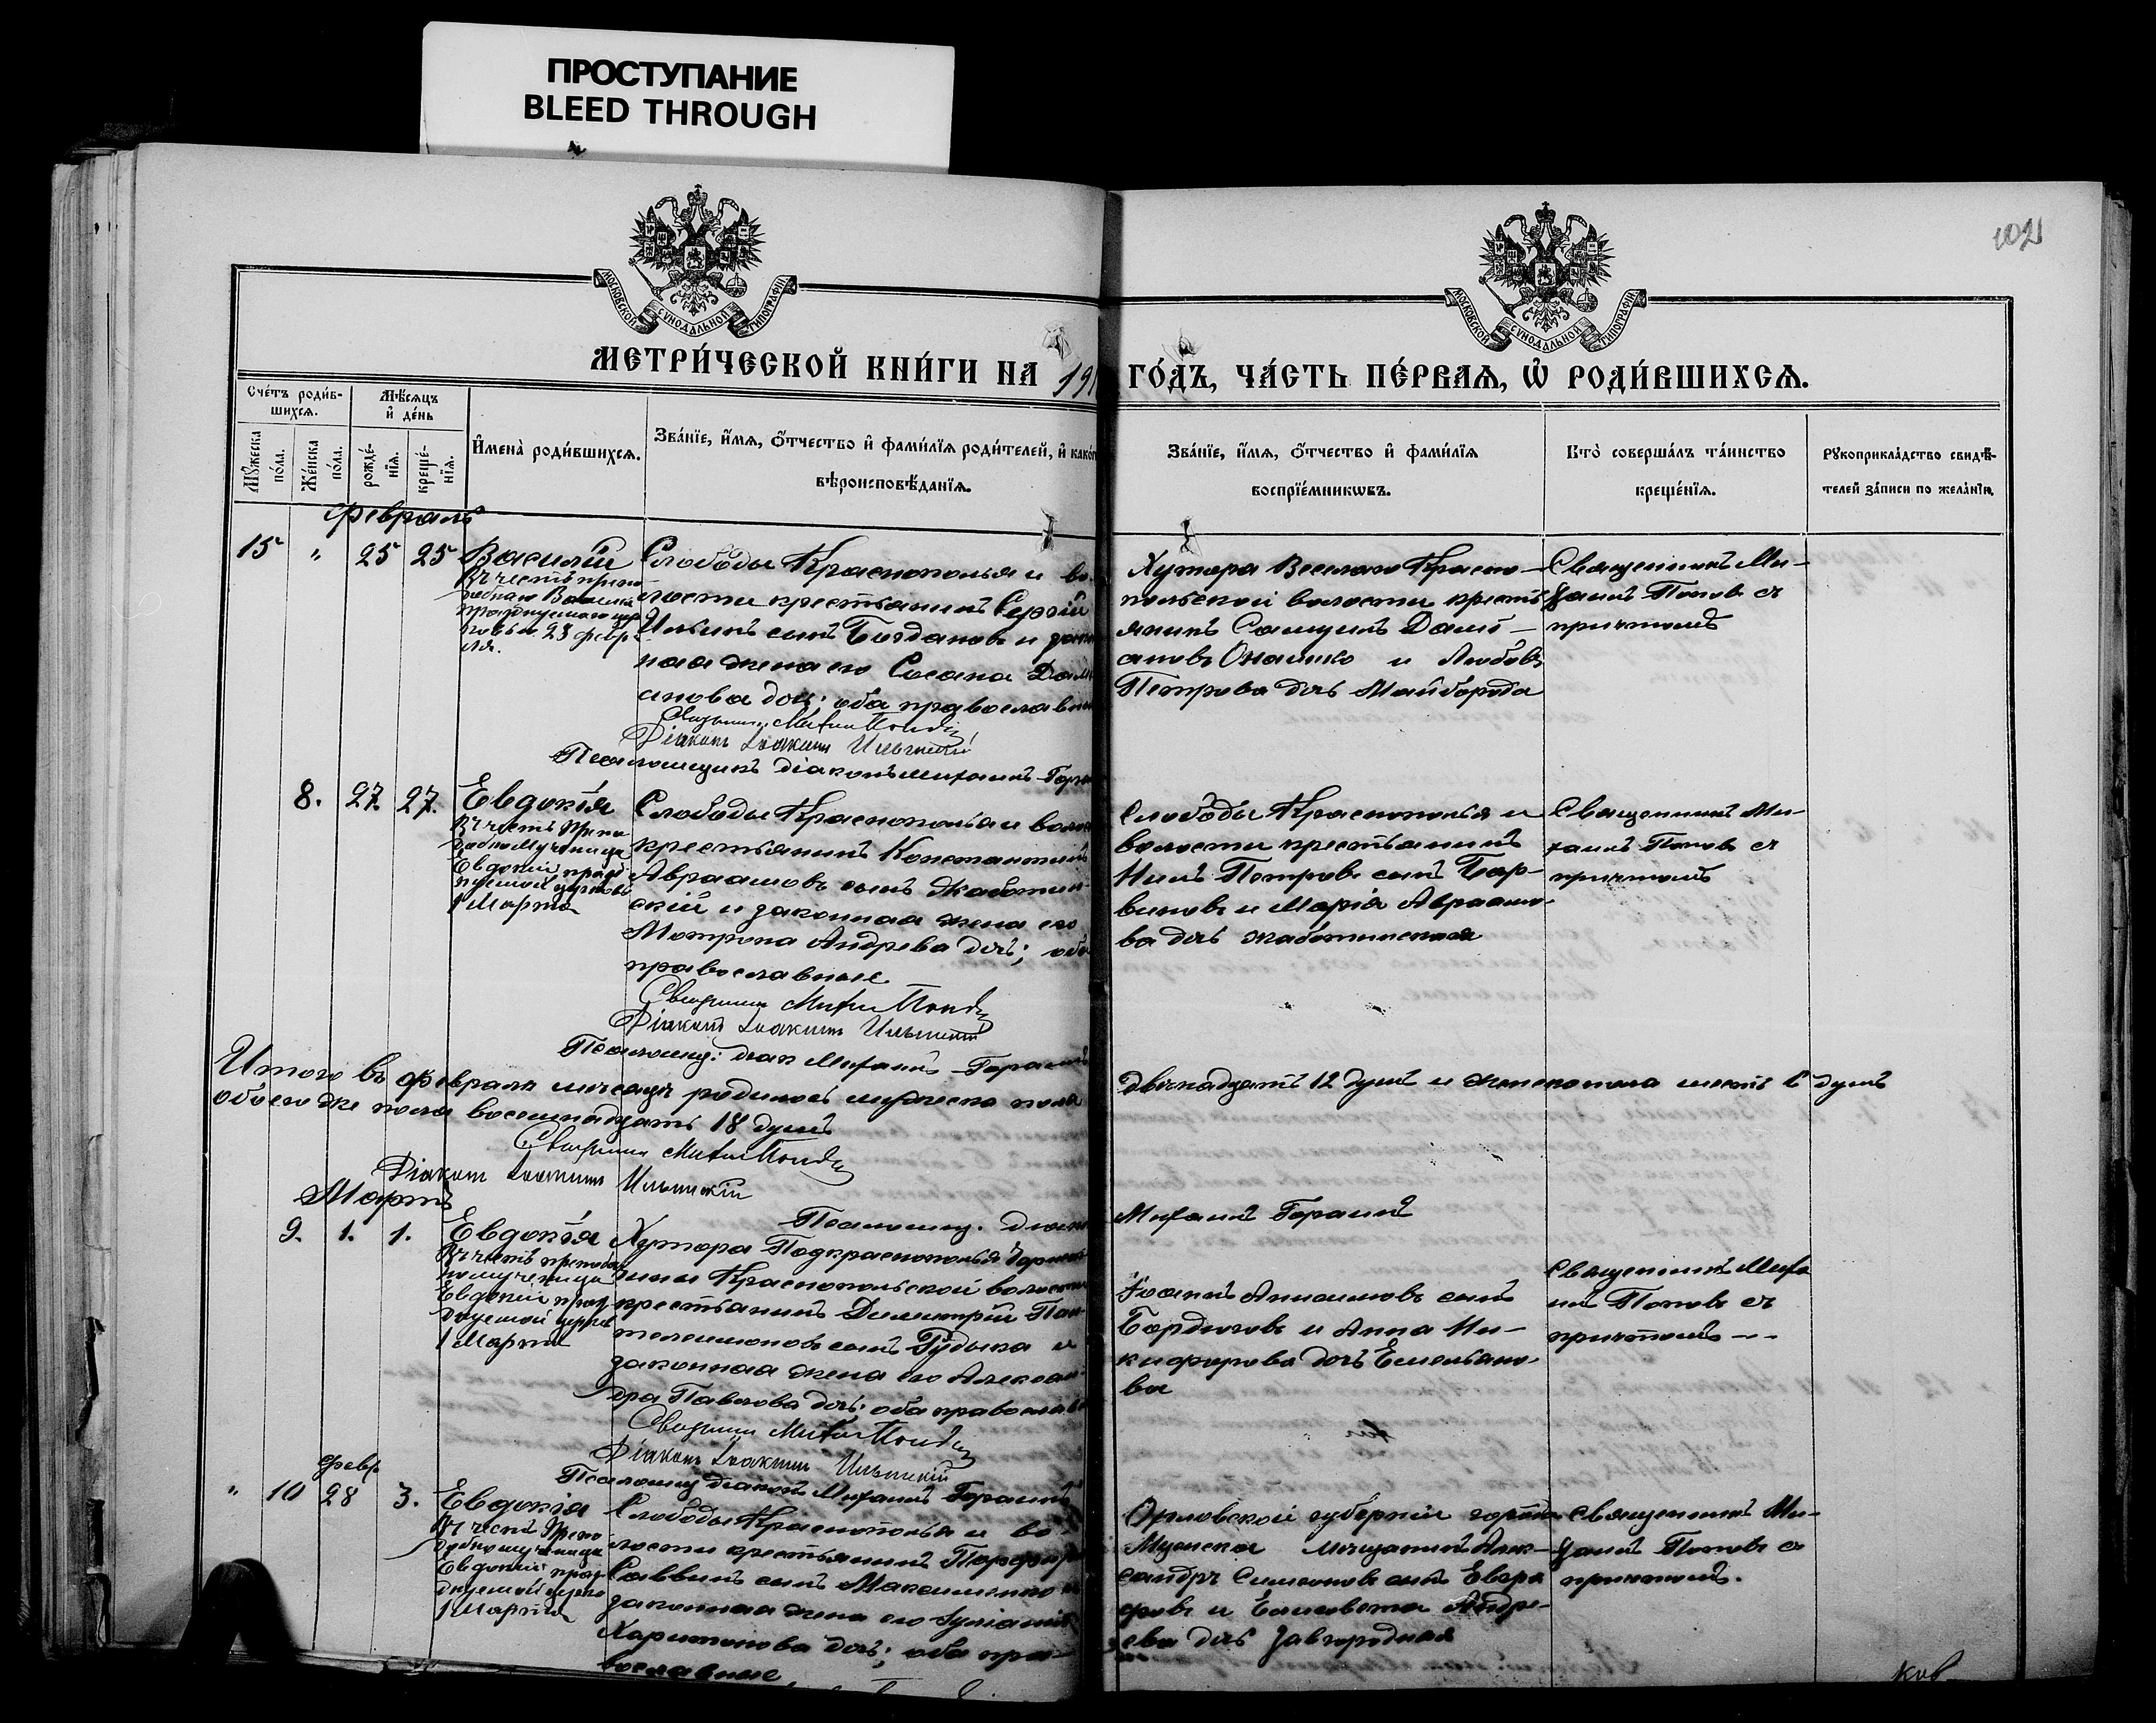 ПРОСТУПАНИЕ
BLEED THROUGH
102
МОСКОВСКОЙ СУНОДАЛЬНОЙ ТИПОГРАФІИ
МОСКОВСКОЙ СУНОДАЛЬНОЙ ТИПОГРАФІИ
МЕТРИ́ЧЕСКОЙ КНИ́ГИ НА 191
ГО́ДЪ, ЧА́СТЬ ПЕ́РВАЯ, Ѡ РОДИ́ВШИХСЯ.
Сче́тъ роди́в-
шихся.
Мѣ́сяцъ
и҆ де́нь
Мꙋжеска
по́ла.
Же́нска
по́ла.
рожде́-
нїя.
креще́-
нїя.
И҆мена̀ роди́вшихся.
Зва́нїе, и҆́мя, ѻ҆́тчество и҆ фами́лїя роди́телей, и҆ како́г
вѣроисповѣ́данїя.
Зва́нїе, и҆́мя, ѻ҆́тчество и҆ фами́лїя
воспрїе́мникѡвъ.
Кто̀ соверша́лъ та́инство
креще́нїя.
Рꙋкоприкла́дство свидѣ́-
телей за́писи по жела́нїю.
Февраль
15 " 25 25 Василій
Въ честь препо-
добнаго Василія
празднуемаго цер
ковью 28 февра
ля.
Слободы Краснополья и во
лости крестьянинъ Сергій
Ильинъ сынъ Богдановъ и закон
ная жена его Сосана Дамі
анова дочь; оба православные
Священникъ Михаилъ Поповъ
Діаконъ Іоакимъ Ильинскій
Псаломщикъ діаконъ Михаилъ Гора
Хутора Веселаго Красно-
польской волости кресть
янинъ Самуилъ Даміа-
новъ Онашко и Любовь
Петрова дочь Майборода
Священникъ Ми-
хаилъ Поповъ съ
причтомъ
8. 27. 27. Евдокія
Въ честь Препо
добномученица
Евдокіи празд
нуемой церковью
1 Марта
Слободы Краснополья и воло
крестьянинъ Константинъ
Авраамовъ сынъ Жаботин-
скій и законная жена его
Мотрона Андрева дочь; оба
православные
Священникъ Михаилъ Поповъ
Діаконъ Іоакимъ Ильинскій
Псаломщ: діак Михаилъ Горали
Слободы Краснополья и
волости крестьянинъ
Нилъ Петровъ сынъ Бар-
виновъ и Марія Авраамо-
ва дочь Жаботинская
Священникъ Ми-
хаилъ Поповъ съ
причтомъ
Итого въ Февралѣ мѣсяцѣ родилось мужеска пола
двѣнадцать 12 душъ и женска пола шесть 6 душъ
обоего же пола восемнадцать 18 душъ
Священникъ Михаилъ Поповъ
Діаконъ Іоакимъ Ильинскій
Псаломщ. діако
Михаилъ Горалій
Мартъ
9. 1. 1. Евдокія
Въ честь преподоб
номученица
Евдокіи праз
днуемой церков
1 Марта
Хутора Подкраснополья
Краснопольской волости
крестьянинъ Димитрій Пан
телеимоновъ сынъ Рудыка и
законная жена его Алексан-
дра Павлова дочь; оба православ
Священникъ Михаилъ Поповъ
Діаконъ Іоакимъ Ильинскій
Псаломщ діаконъ Михаилъ Горалій
Анисимовъ сынъ
и Анна Ни-
кифорова дочь Емельяно-
ва
Священникъ Миха
илъ Поповъ съ
причтомъ --
Февр
" 10 28 3. Евдокія
Въ честь Препо
добномученица
Евдокіи праз
днуемой церко
1 Марта
Слободы Краснополья и во-
лости крестьянинъ
Саввинъ сынъ Максименко и
законная жена его Іуліанія
Харитонова дочь; оба пра-
вославные
Орловской губерніи города
Мценска мѣщанинъ Алек-
сандръ Симеоновъ сынъ Евгра
фовъ и Елисавета Андре-
ева дочь Завгородная
Священникъ Ми-
хаилъ Поповъ съ
причтомъ.